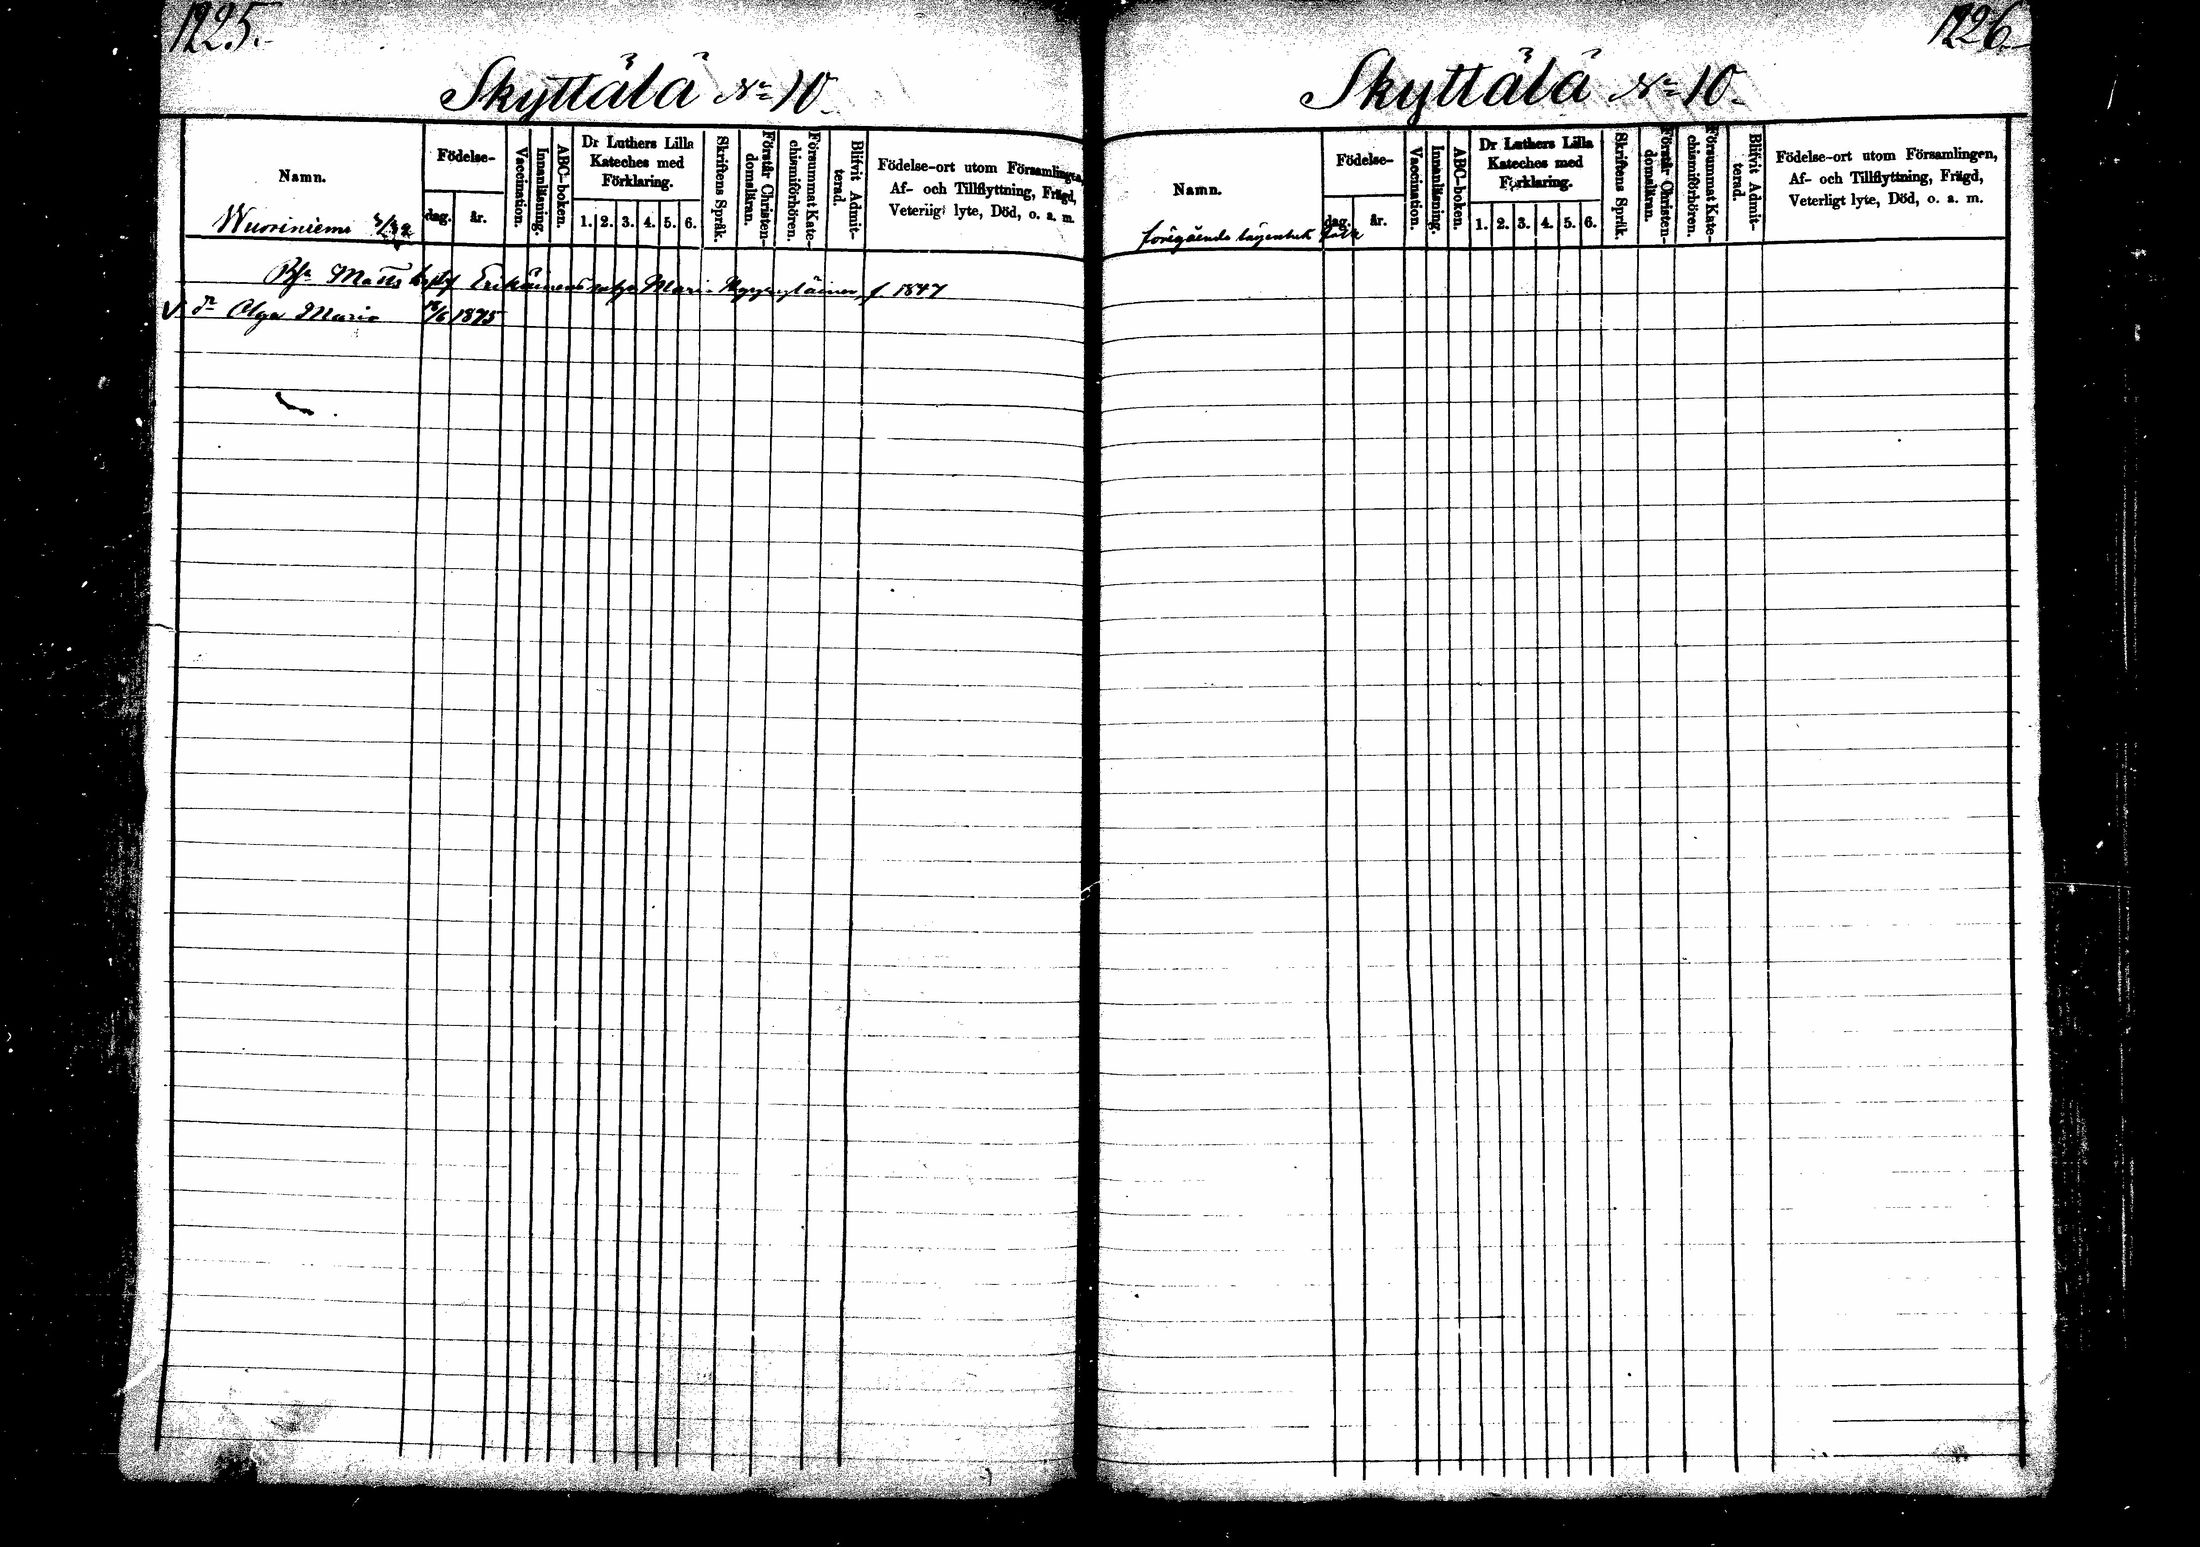 1225.
Skyttälä No 10
Namn.
Födelse-
dag.
år.
Vaccination.
Innanläsning.
ABC-boken.
Dr Luthers Lilla
Kateches med
Förklaring.
1. 2. 3. 4. 5. 6.
Skriftens Språk.
Förstår Christen-
domsläran.
Försummat Kate-
chismiförhören.
Blifvit Admit-
terad.
Födelse-ort utom Församlingen,
Af- och Tillflyttning, Frägd,
Veterligt lyte, Död, o. a. m.
Wuoriniemi
Matts Maria f. 1847
dr Olga Maria /6 1875
1226
Skyttälä No 10.
Namn.
Födelse-
dag.
år.
Vaccination.
Innanläsning.
ABC-boken.
Dr Luthers Lilla
Kateches med
Förklaring.
1. 2. 3. 4. 5. 6.
Skriftens Språk.
Förstår Christen-
domsläran.
Försummat Kate-
chismiförhören.
Blifvit Admit-
terad.
Födelse-ort utom Församlingen,
Af- och Tillflyttning, Frägd,
Veterligt lyte, Död, o. a. m.
föregående lägenhets folk